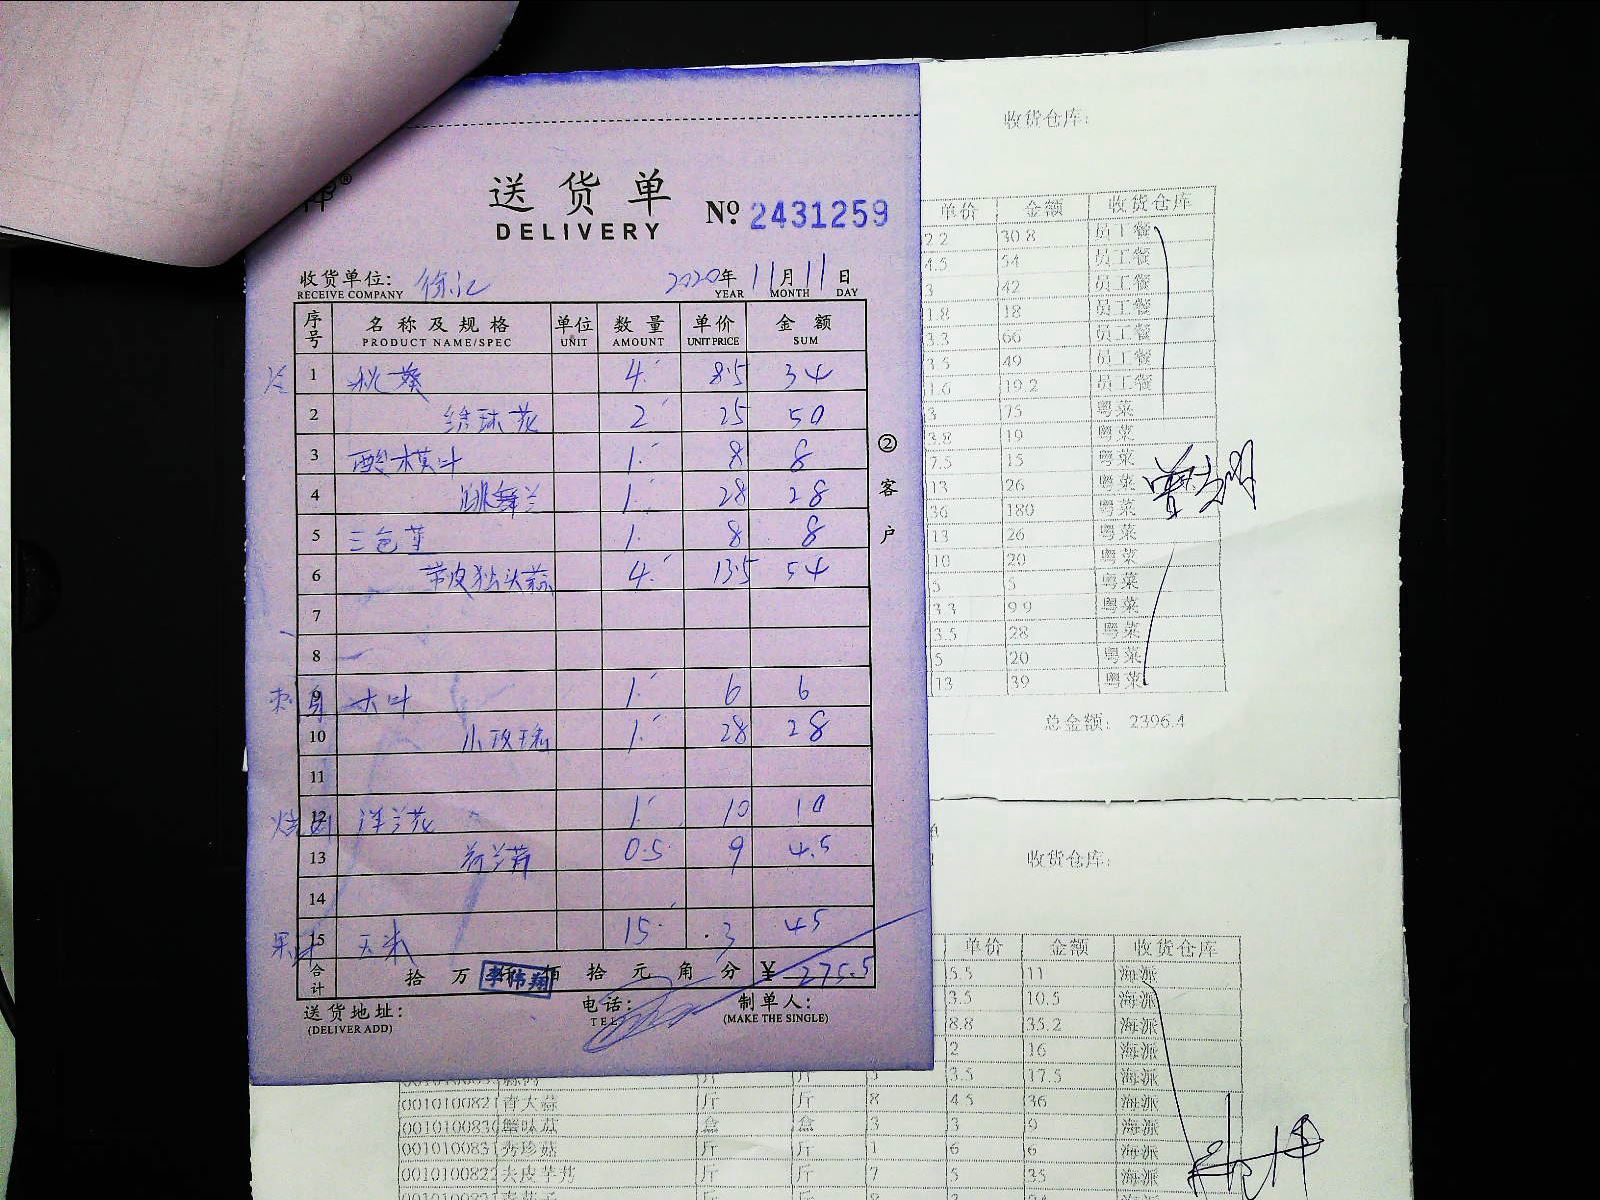 送货单
DELIVERY
№ 2431259
收货单位: 徐汇 2020年 11月 11日
RECEIVE COMPANY YEAR MONTH DAY
序号 名称及规格 单位 数量 单价 金额
PRODUCT NAME/SPEC UNIT AMOUNT UNIT PRICE SUM
1 秋葵 4 8.5 34
2 绣球花 2 25 50
3 酸模叶 1 8 8
4 跳舞兰 1 28 28
5 三色堇 1 8 8
6 带皮独头蒜 4 13.5 54
7
8
刺身 9 大叶 1 6 6
10 小玫瑰 1 28 28
11
12 洋兰花 1 10 10
13 荷兰芹 0.5 9 4.5
14
15 玉米 15 3 45
合计 拾 万 仟 佰 拾 元 角 分 ¥ 275.5
李伟翔
送货地址: 电话: 制单人:
(DELIVER ADD) TEL (MAKE THE SINGLE)
②客户
收货仓库:
单价 金额 收货仓库
2.2 30.8 员工餐
4.5 54 员工餐
3 42 员工餐
1.8 18 员工餐
3.3 66 员工餐
3.5 49 员工餐
1.6 19.2 员工餐
3 75 粤菜
3.8 19 粤菜
7.5 15 粤菜
13 26 粤菜
36 180 粤菜
13 26 粤菜
10 20 粤菜
5 5 粤菜
3.3 9.9 粤菜
3.5 28 粤菜
5 20 粤菜
13 39 粤菜
总金额: 2396.4
收货仓库:
单价 金额 收货仓库
5.5 11 海派
3.5 10.5 海派
8.8 35.2 海派
2 16 海派
3.5 17.5 海派
0010100821 青大蒜 斤 斤 8 4.5 36 海派
0010100830 蟹味菇 盒 盒 3 3 9 海派
0010100831 秀珍菇 斤 斤 1 6 6 海派
0010100822 去皮芋艿 斤 斤 7 5 35 海派